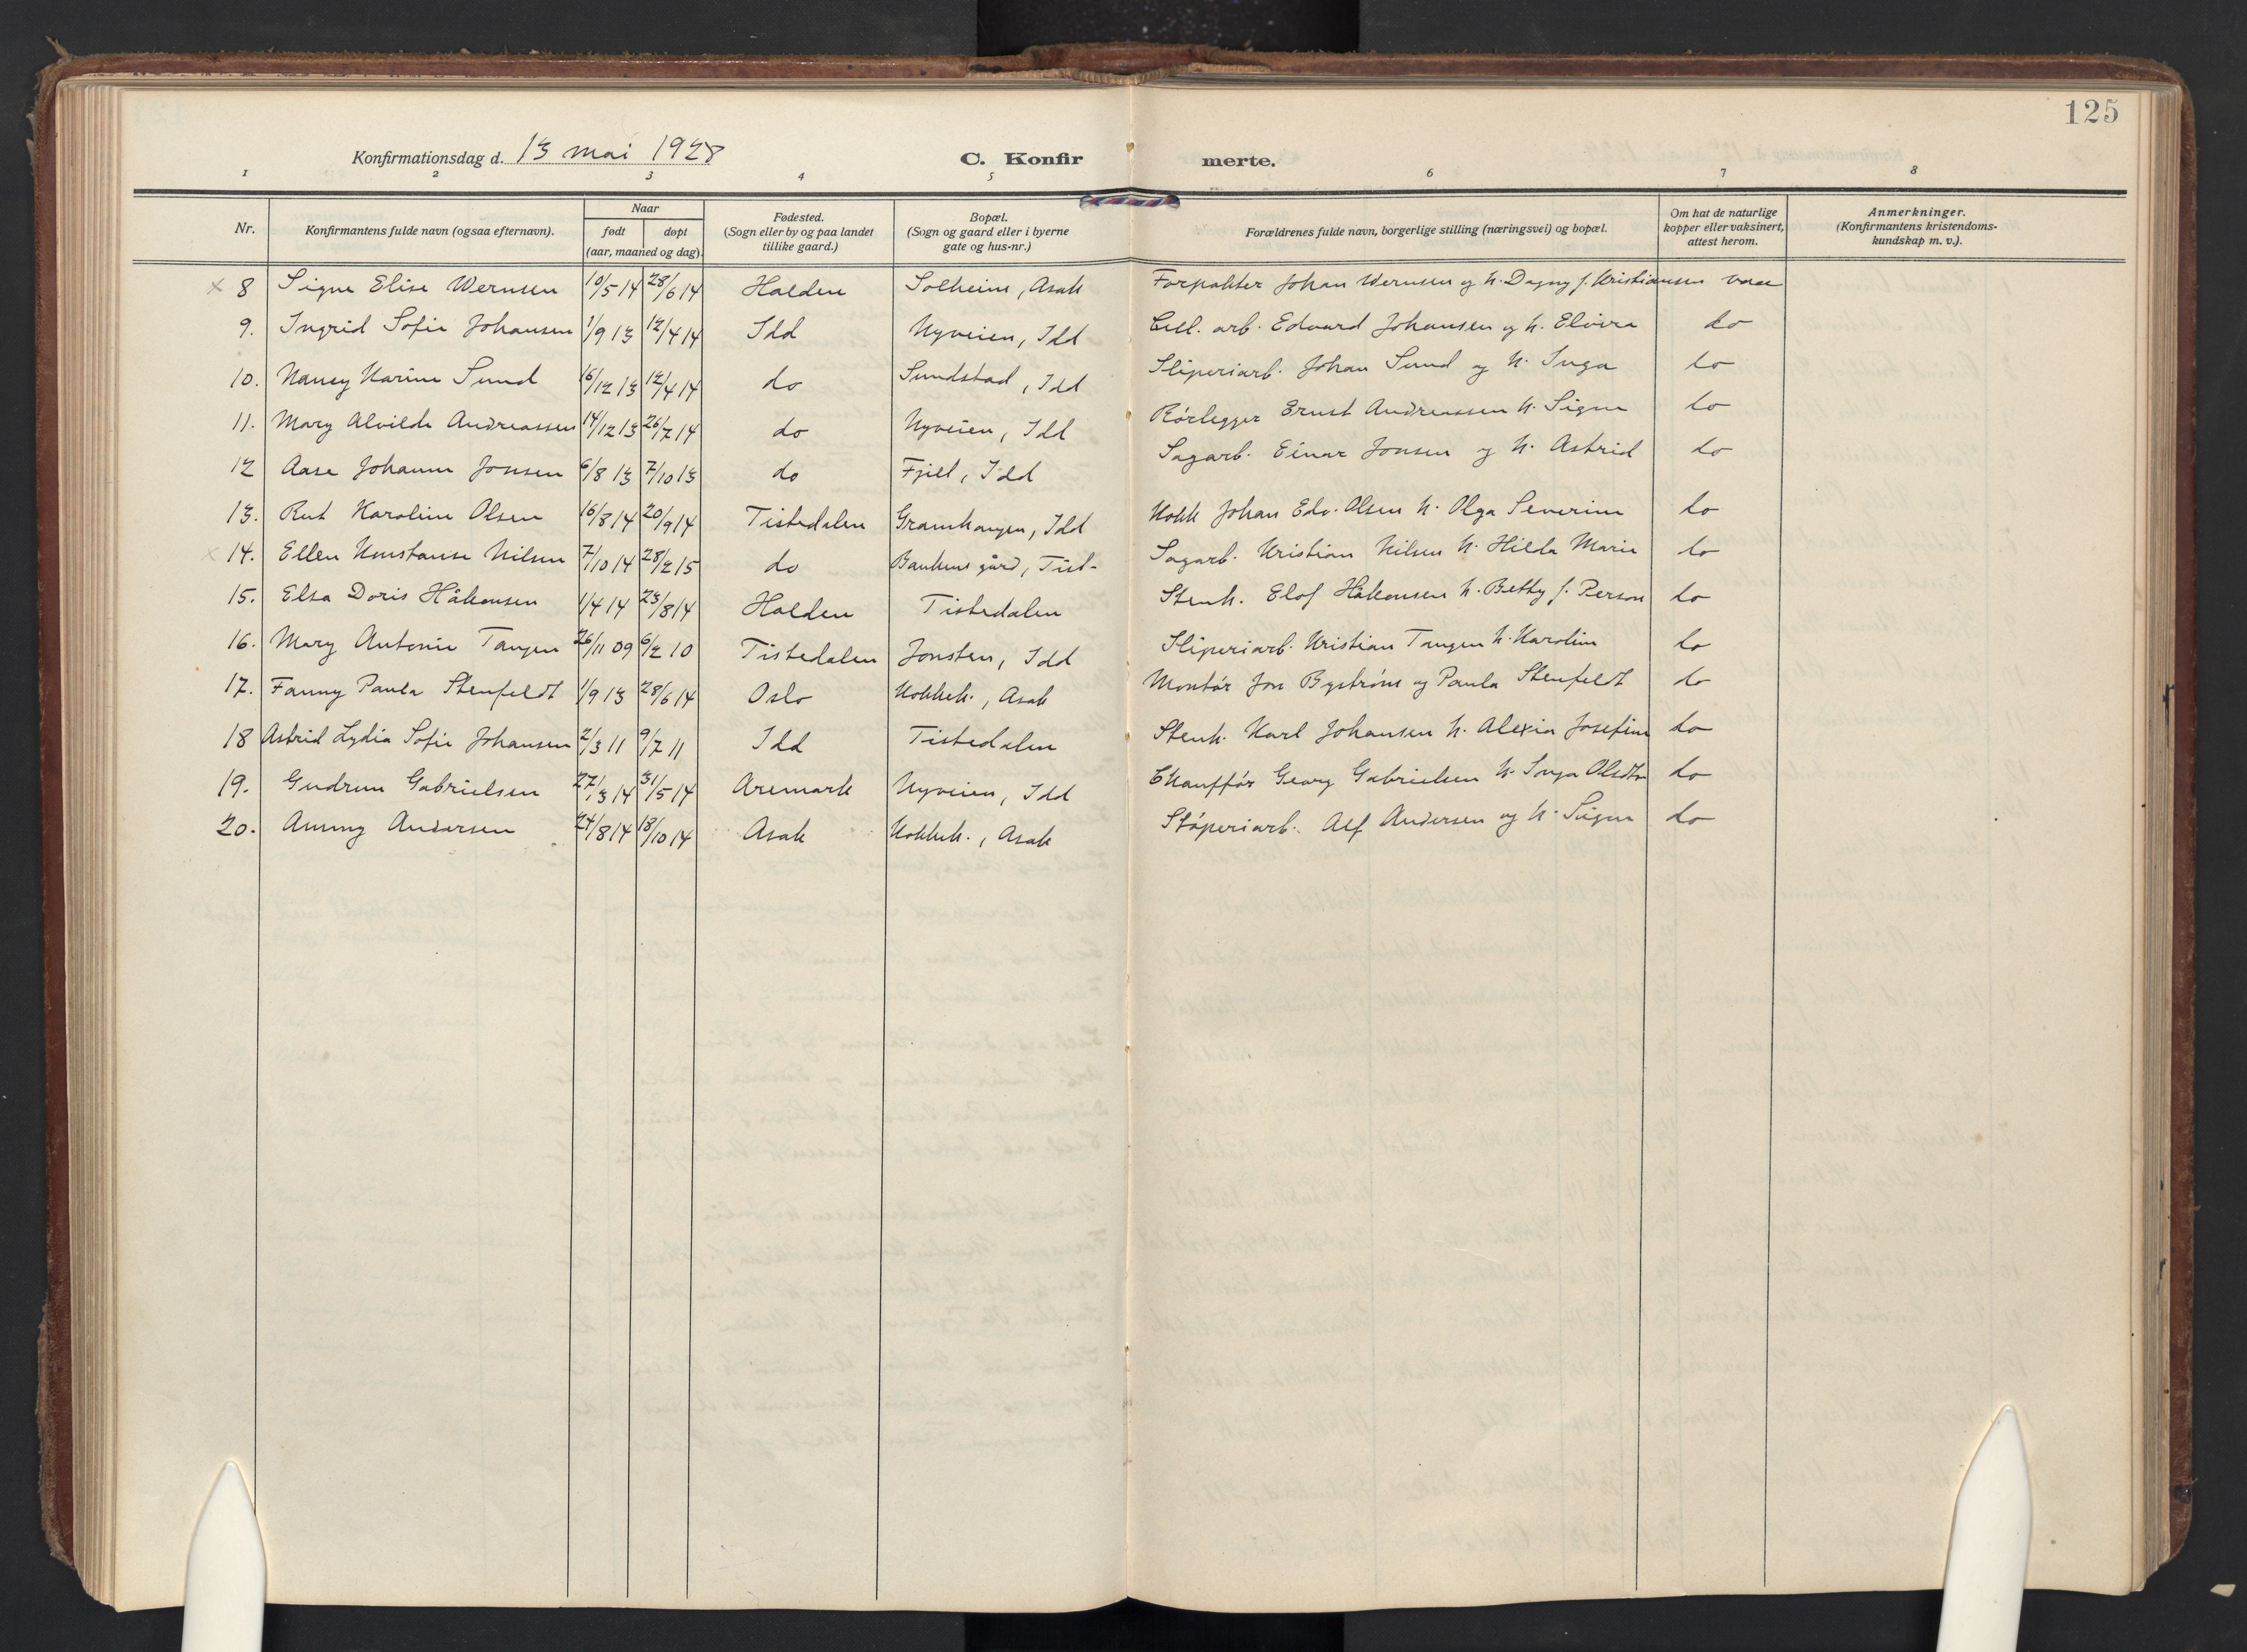 125
Konfirmationsdag d. 13 mai 1928 C. Konfir merte.
1 2 3 4 5 6 7 8
Nr. Konfirmantens fulde navn (ogsaa efternavn). Naar født døpt (aar, maaned og dag). Fødested. (Sogn eller by og paa landet tillike gaard.) Bopæl. (Sogn og gaard eller i byerne gate og hus-nr.) Forældrenes fulde navn, borgerlige stilling (næringsvei) og bopæl. Om hat de naturlige kopper eller vaksinert, attest herom. Anmerkninger. (Konfirmantens kristendoms-kundskap m. v.).
x 8 Signe Elise Wernsen 10/5 14 28/6 14 Halden Solheim, Asak Forpakter Johan Wernsen og h. Dagny f. Kristiansen vacc
9. Ingrid Sofie Johansen 1/9 13 12/4 14 Idd Nyveien, Idd Cell. arb. Edvard Johansen og h. Elvira do
10. Nancy Karine Sund 16/12 13 12/4 14 do Sundstad, Idd Sliperiarb. Johan Sund og h. Inga do
11. Mary Alvilde Andreassen 14/12 13 26/7 14 do Nyveien, Idd Rörlegger Ernst Andreassen h. Signe do
12 Aase Johanne Jonsen 6/8 13 7/10 13 do Fjell, Idd Sagarb. Einar Jonsen og h. Astrid do
13. Rut Karoline Olsen 16/8 14 20/9 14 Tistedalen Granhaugen, Idd Kokk Johan Edv. Olsen h. Olga Severine do
x 14. Ellen Konstanse Nilsen 7/10 14 28/2 15 do Bankens gård, Tist- Sagarb. Kristian Nilsen h. Hilda Marie do
15. Elsa Doris Håkonsen 1/4 14 23/8 14 Halden Tistedalen Stenh. Elof Håkonsen h. Betty f. Person do
16. Mary Antonie Tangen 26/11 09 6/2 10 Tistedalen Jonsten, Idd Sliperiarb. Kristian Tangen h. Karoline do
17. Fanny Paula Stenfeldt 1/9 13 28/6 14 Oslo Kokkeh., Asak Montör Jon Byström og Paula Stenfeldt do
18 Astrid Lydia Sofie Johansen 2/3 11 9/7 11 Idd Tistedalen Stenh. Karl Johansen h. Alexia Josefine do
19. Gudrun Gabrielsen 27/3 14 31/5 14 Aremark Nyveien, Idd Chauffór Georg Gabrielsen h. Olsdtr do
20. Anny Andersen 24/8 14 18/10 14 Asak Kokkeh., Asak Stöperiarb. Alf Andersen og h. Signe do